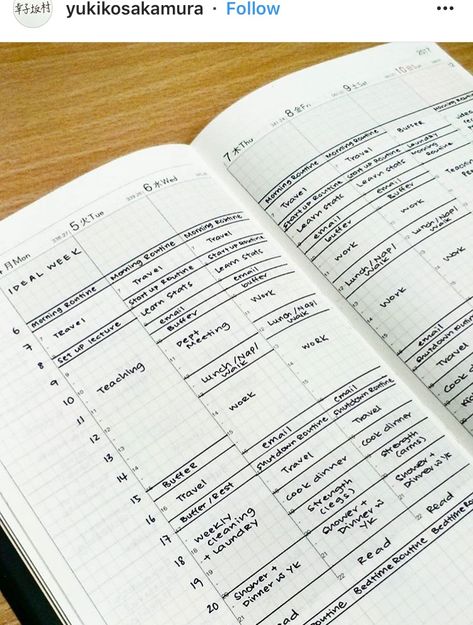 章子坂村
yukikosakamura · Follow
2017
月Mon
5火Tue
6水Wed
7木Thu
8金Fri
9土Sat
10日Sun
6
7
8
9
10
11
12
13
14
15
16
17
18
19
20
IDEAL WEEK
Morning Routine
Travel
Set up lecture
Teaching
Buffer
Travel
Buffer/Rest
Weekly
cleaning
+ Laundry
Shower +
Dinner w YK
Morning Routine
Travel
Start up Routine
Learn Stats
email
Buffer
Dept
Meeting
Lunch/Nap/
Walk
Work
email
Shutdown Routine
Travel
cook dinner
strength
(legs)
Shower +
Dinner w
YK
Read
Morning Routine
Travel
Start up Routine
Learn Stats
email
buffer
Work
Lunch/Nap/
Walk
Work
email
Shutdown Routine
Travel
cook dinner
strength
(arms)
Shower +
Dinner w YK
Read
Bedtime Routine
Morning Routine
Travel
Start up Routine
Learn Stats
email
buffer
Work
Lunch/Nap/
Walk
Work
email
Shutdown Routine
Travel
Cook
Morning Routine
Travel
Start up Routine
Learn Stats
email
Buffer
Work
Lunch/Nap/
Walk
Work
Buffer
Laundry
Morning
Routine